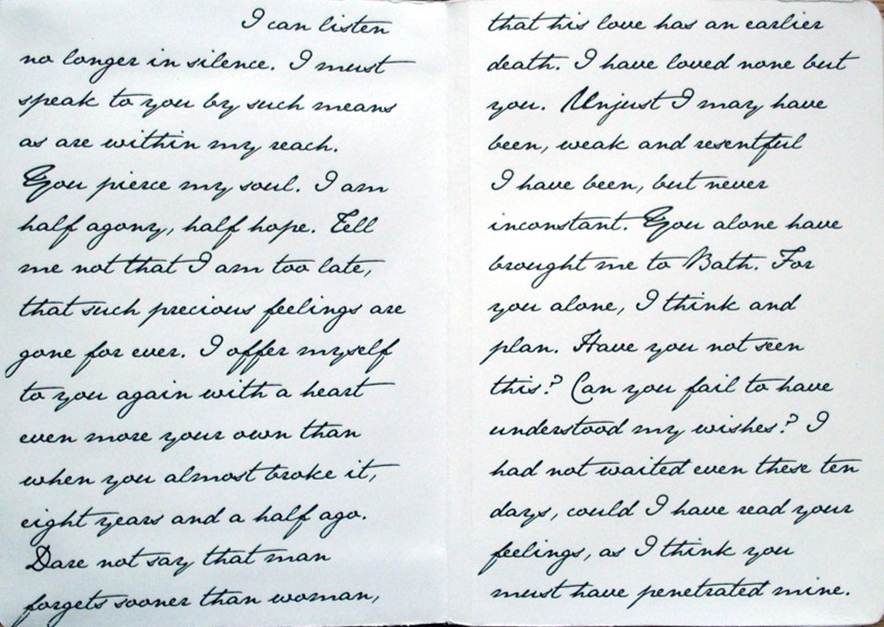 I can listen
no longer in silence. I must
speak to you by such means
as are within my reach.
You pierce my soul. I am
half agony, half hope. Tell
me not that I am too late,
that such precious feelings are
gone for ever. I offer myself
to you again with a heart
even more your own than
when you almost broke it,
eight years and a half ago.
Dare not say that man
forgets sooner than woman,
that his love has an earlier
death. I have loved none but
you. Unjust I may have
been, weak and resentful
I have been, but never
inconstant. You alone have
brought me to Bath. For
you alone, I think and
plan. Have you not seen
this? Can you fail to have
understood my wishes? I
had not waited even these ten
days, could I have read your
feelings, as I think you
must have penetrated mine.